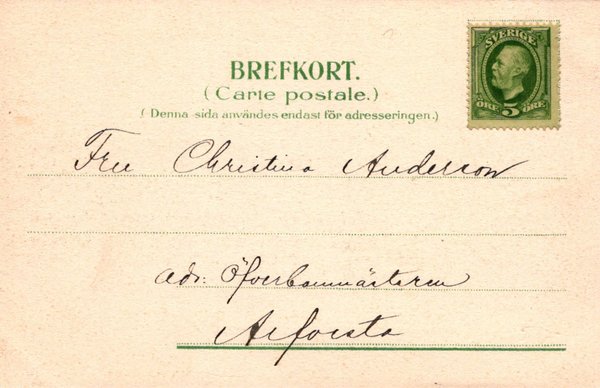 SVERIGE
ÖRE 5 ÖRE
BREFKORT.
(Carte postale.)
(Denna sida användes endast för adresseringen.)
Fru Christina Anderson
adr: Öfverbanmästaren
Arfvesta